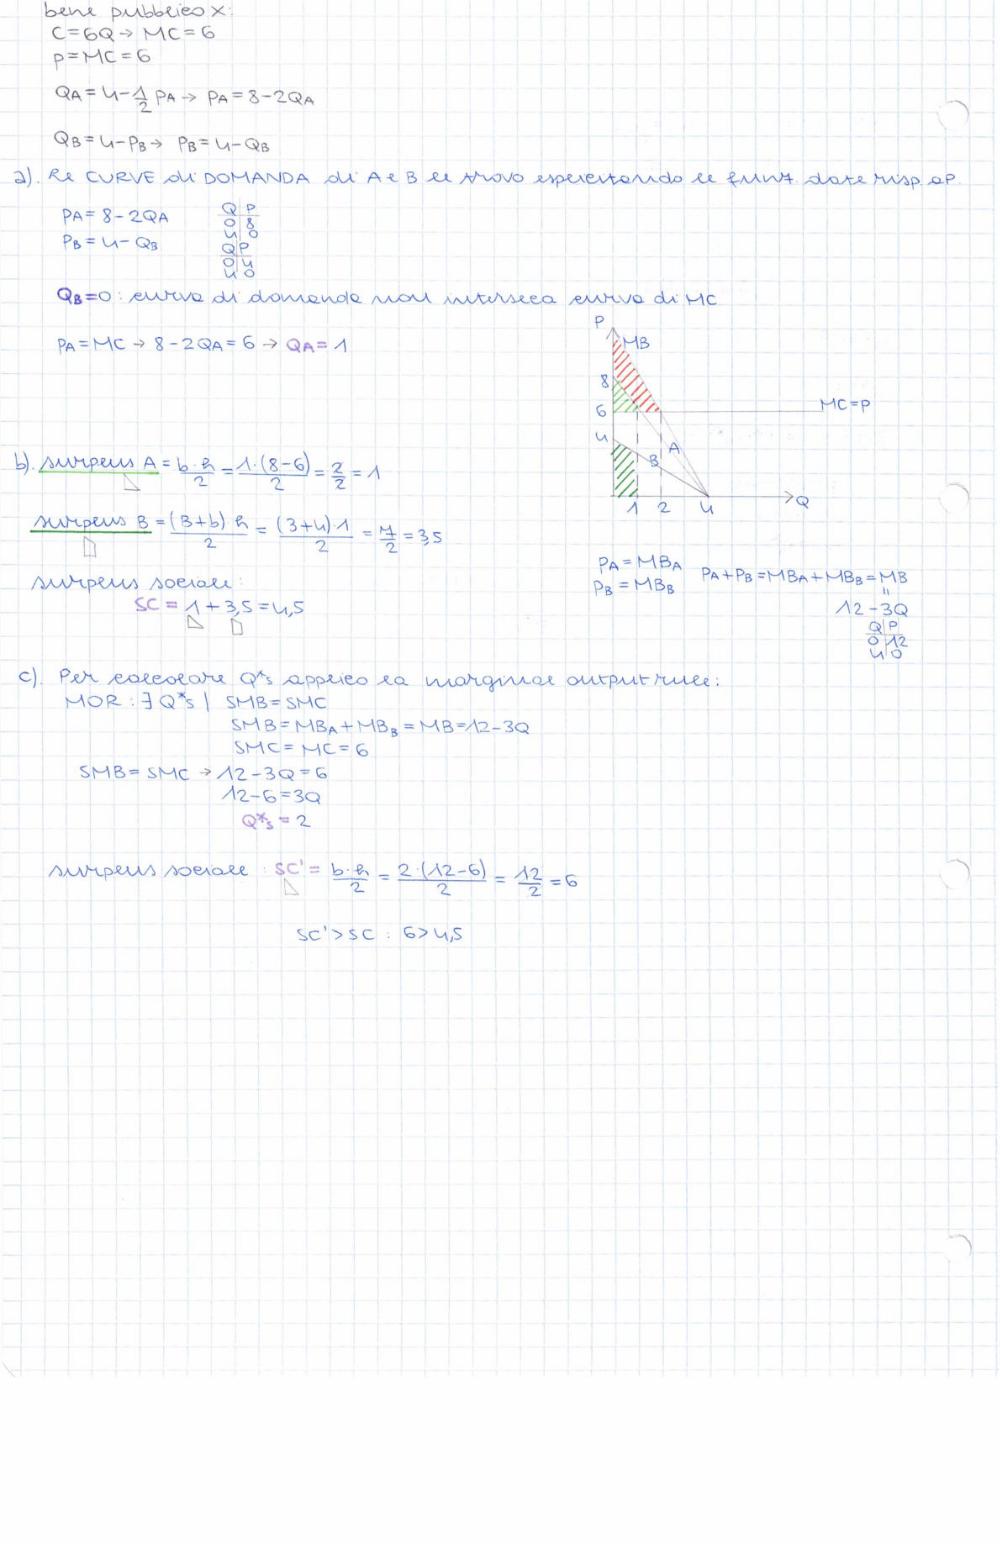 bene pubblico x:
C=6Q → MC=6
p=MC=6
QA=4-1/2 PA → PA=8-2QA
QB=4-PB → PB=4-QB
a). Le CURVE di DOMANDA di A e B le trovo esplicitando le funz. date risp. a P
PA=8-2QA
Q P
0 8
4 0
PB=4-QB
Q P
0 4
4 0
QB=0: curva di domanda non interseca curva di MC
PA=MC → 8-2QA=6 → QA=1
P
MB
8
6
MC=P
4
A
B
1 2 4 Q
b). surplus A = b·h/2 = 1·(8-6)/2 = 2/2 = 1
surplus B = (B+b)·h/2 = (3+4)·1/2 = 7/2 = 3,5
surplus sociale:
SC = 1 + 3,5 = 4,5
PA=MBA
PB=MBB
PA+PB=MBA+MBB=MB
=
12-3Q
Q P
0 12
4 0
c). Per calcolare Q*s applico la marginal output rule:
MOR: ∃ Q*s | SMB=SMC
SMB=MBA+MBB=MB=12-3Q
SMC=MC=6
SMB=SMC → 12-3Q=6
12-6=3Q
Q*s=2
surplus sociale: SC' = b·h/2 = 2·(12-6)/2 = 12/2 = 6
SC'>SC: 6>4,5